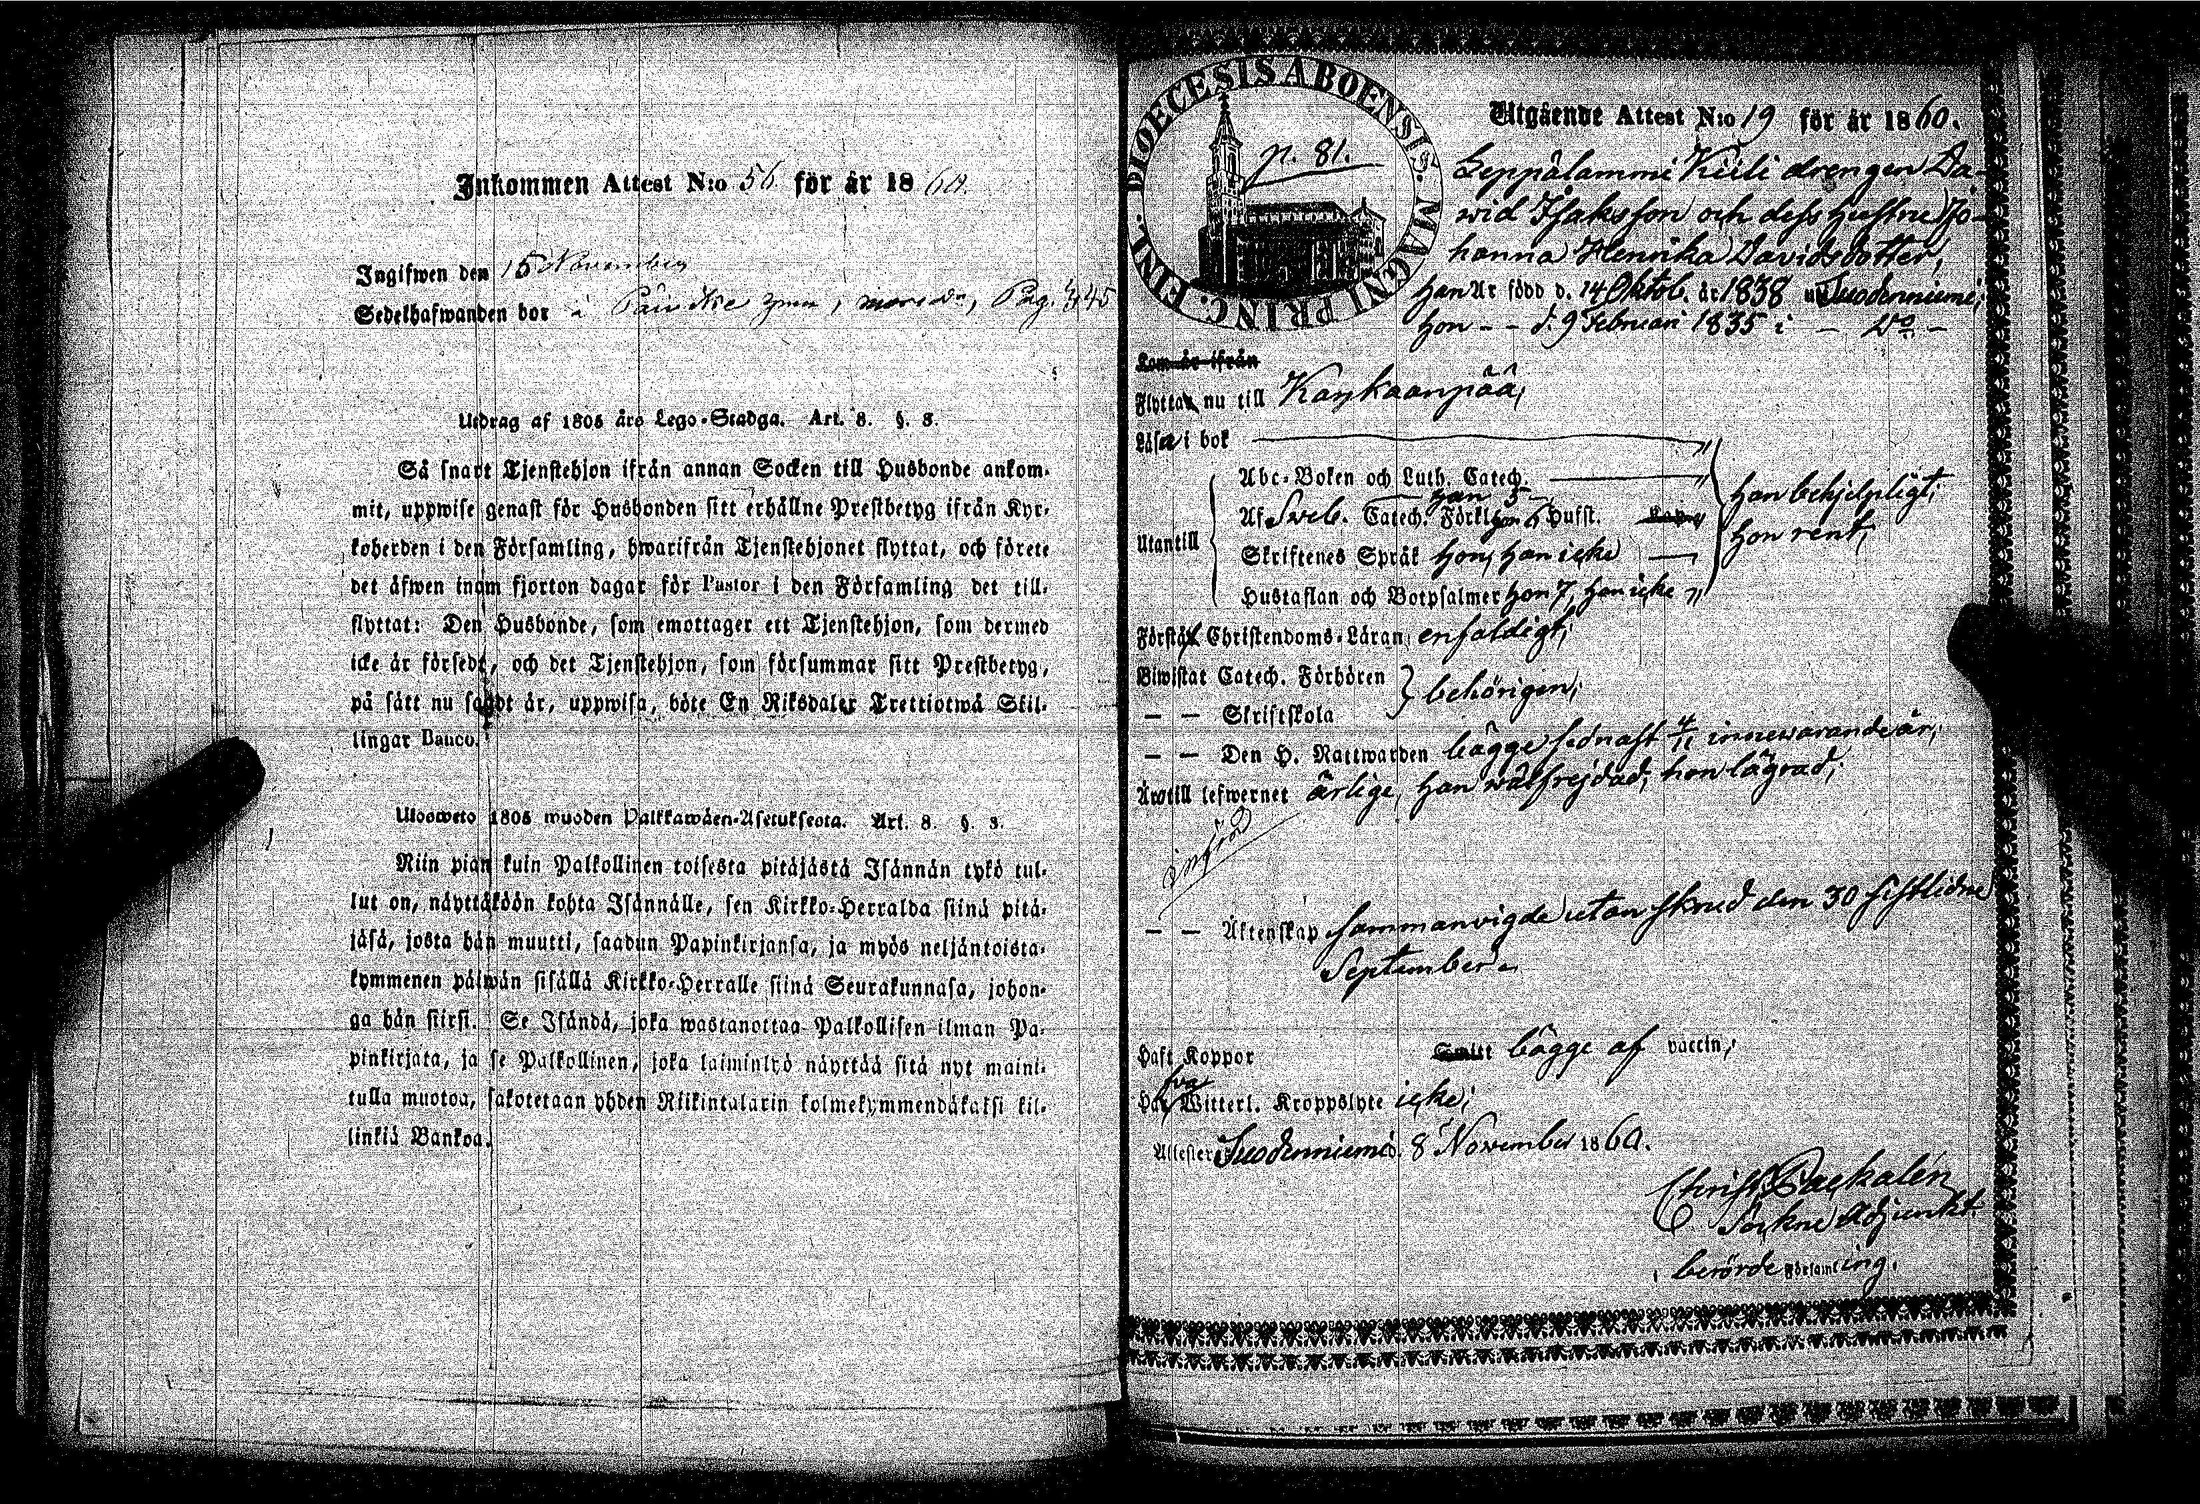 Inkommen Attest N:o 56 för år 1860.
Ingifwen den 15 November
Sedelhafwanden bor
Utdrag af 1805 års Lego-Stadga. Art. 8. §. 3.
Så snart Tjenstehjon ifrån annan Socken till Husbonde ankom-
mit, uppwise genast för Husbonden sitt erhållne Prestbetyg ifrån Kyr-
koherden i den Församling, hwarifrån Tjenstehjonet flyttat, och förete
det äfwen inom fjorton dagar för Pastor i den Församling det till-
flyttat: Den Husbonde, som emottager ett Tjenstehjon, som dermed
icke är försedt, och det Tjenstehjon, som försummar sitt Prestbetyg,
på sätt nu sagdt är, uppwisa, böte En Riksdaler Trettiotwå Skil-
lingar Banco.
Ulosweto 1805 wuoden Palkkawäen-Asetuksesta. Art. 8. §. 3.
Niin pian kuin Palkollinen toisesta pitäjästä Isännän tykö tul-
lut on, näyttäköön kohta Isännälle, sen Kirkko-Herralda siinä pitä-
jäsä, josta hän muutti, saadun Papinkirjansa, ja myös neljäntoista-
kymmenen päiwän sisällä Kirkko-Herralle siinä Seurakunnasa, johon-
ga hän siirsi. Se Isändä, joka wastanottaa Palkollisen ilman Pa-
pinkirjata, ja se Palkollinen, joka laiminlyö näyttää sitä nyt maini-
tulla muotoa, sakotetaan yhden Riikintalarin kolmekymmendäkaksi kil-
lingiä Bankoa.
DIOECESIS ABOENSIS. MAGNI PRINC. FINL.
p. 81.
Utgående Attest N:o 19 för år 1860.
Leppälammi Kiili drengen Da-
wid Isaksson och dess hustru Jo-
hanna Henrika Davidsdotter,
han är född d. 14 Oktob. år 1838 i Suodenniemi,
hon - - d. 9 Februari 1835 i - Do -
Kom är ifrån
Flytta nu till Kankaanpää,
Läsa i bok
Abc-Boken och Luth. Catech.
han 5
Af Sweb. Catech. Förkl. hon 6 Hufst.
Utantill
Skriftenes Språk hon, han icke
Hustaflan och Botpsalmer hon 7, han icke
han behjelpligt,
hon rent,
Förstå Christendoms-Läran enfaldigt,
Biwistat Catech. Förhören
— — Skriftskola
behörigen,
— — Den H. Nattwarden bägge sednast 4/11 innewarande år,
Äro till lefwernet ärlige, han wälfrejdad, hon lägrad,
— — Äktenskap sammanvigde utan skrud den 30 sistlidne
September.
Haft Koppor bägge af vaccin,
Hafva Witterl. Kroppslyte icke,
Attester Suodenniemi d. 8 November 1860.
Christ. Packalén
Sockne Adjunkt
i berörde Församling.